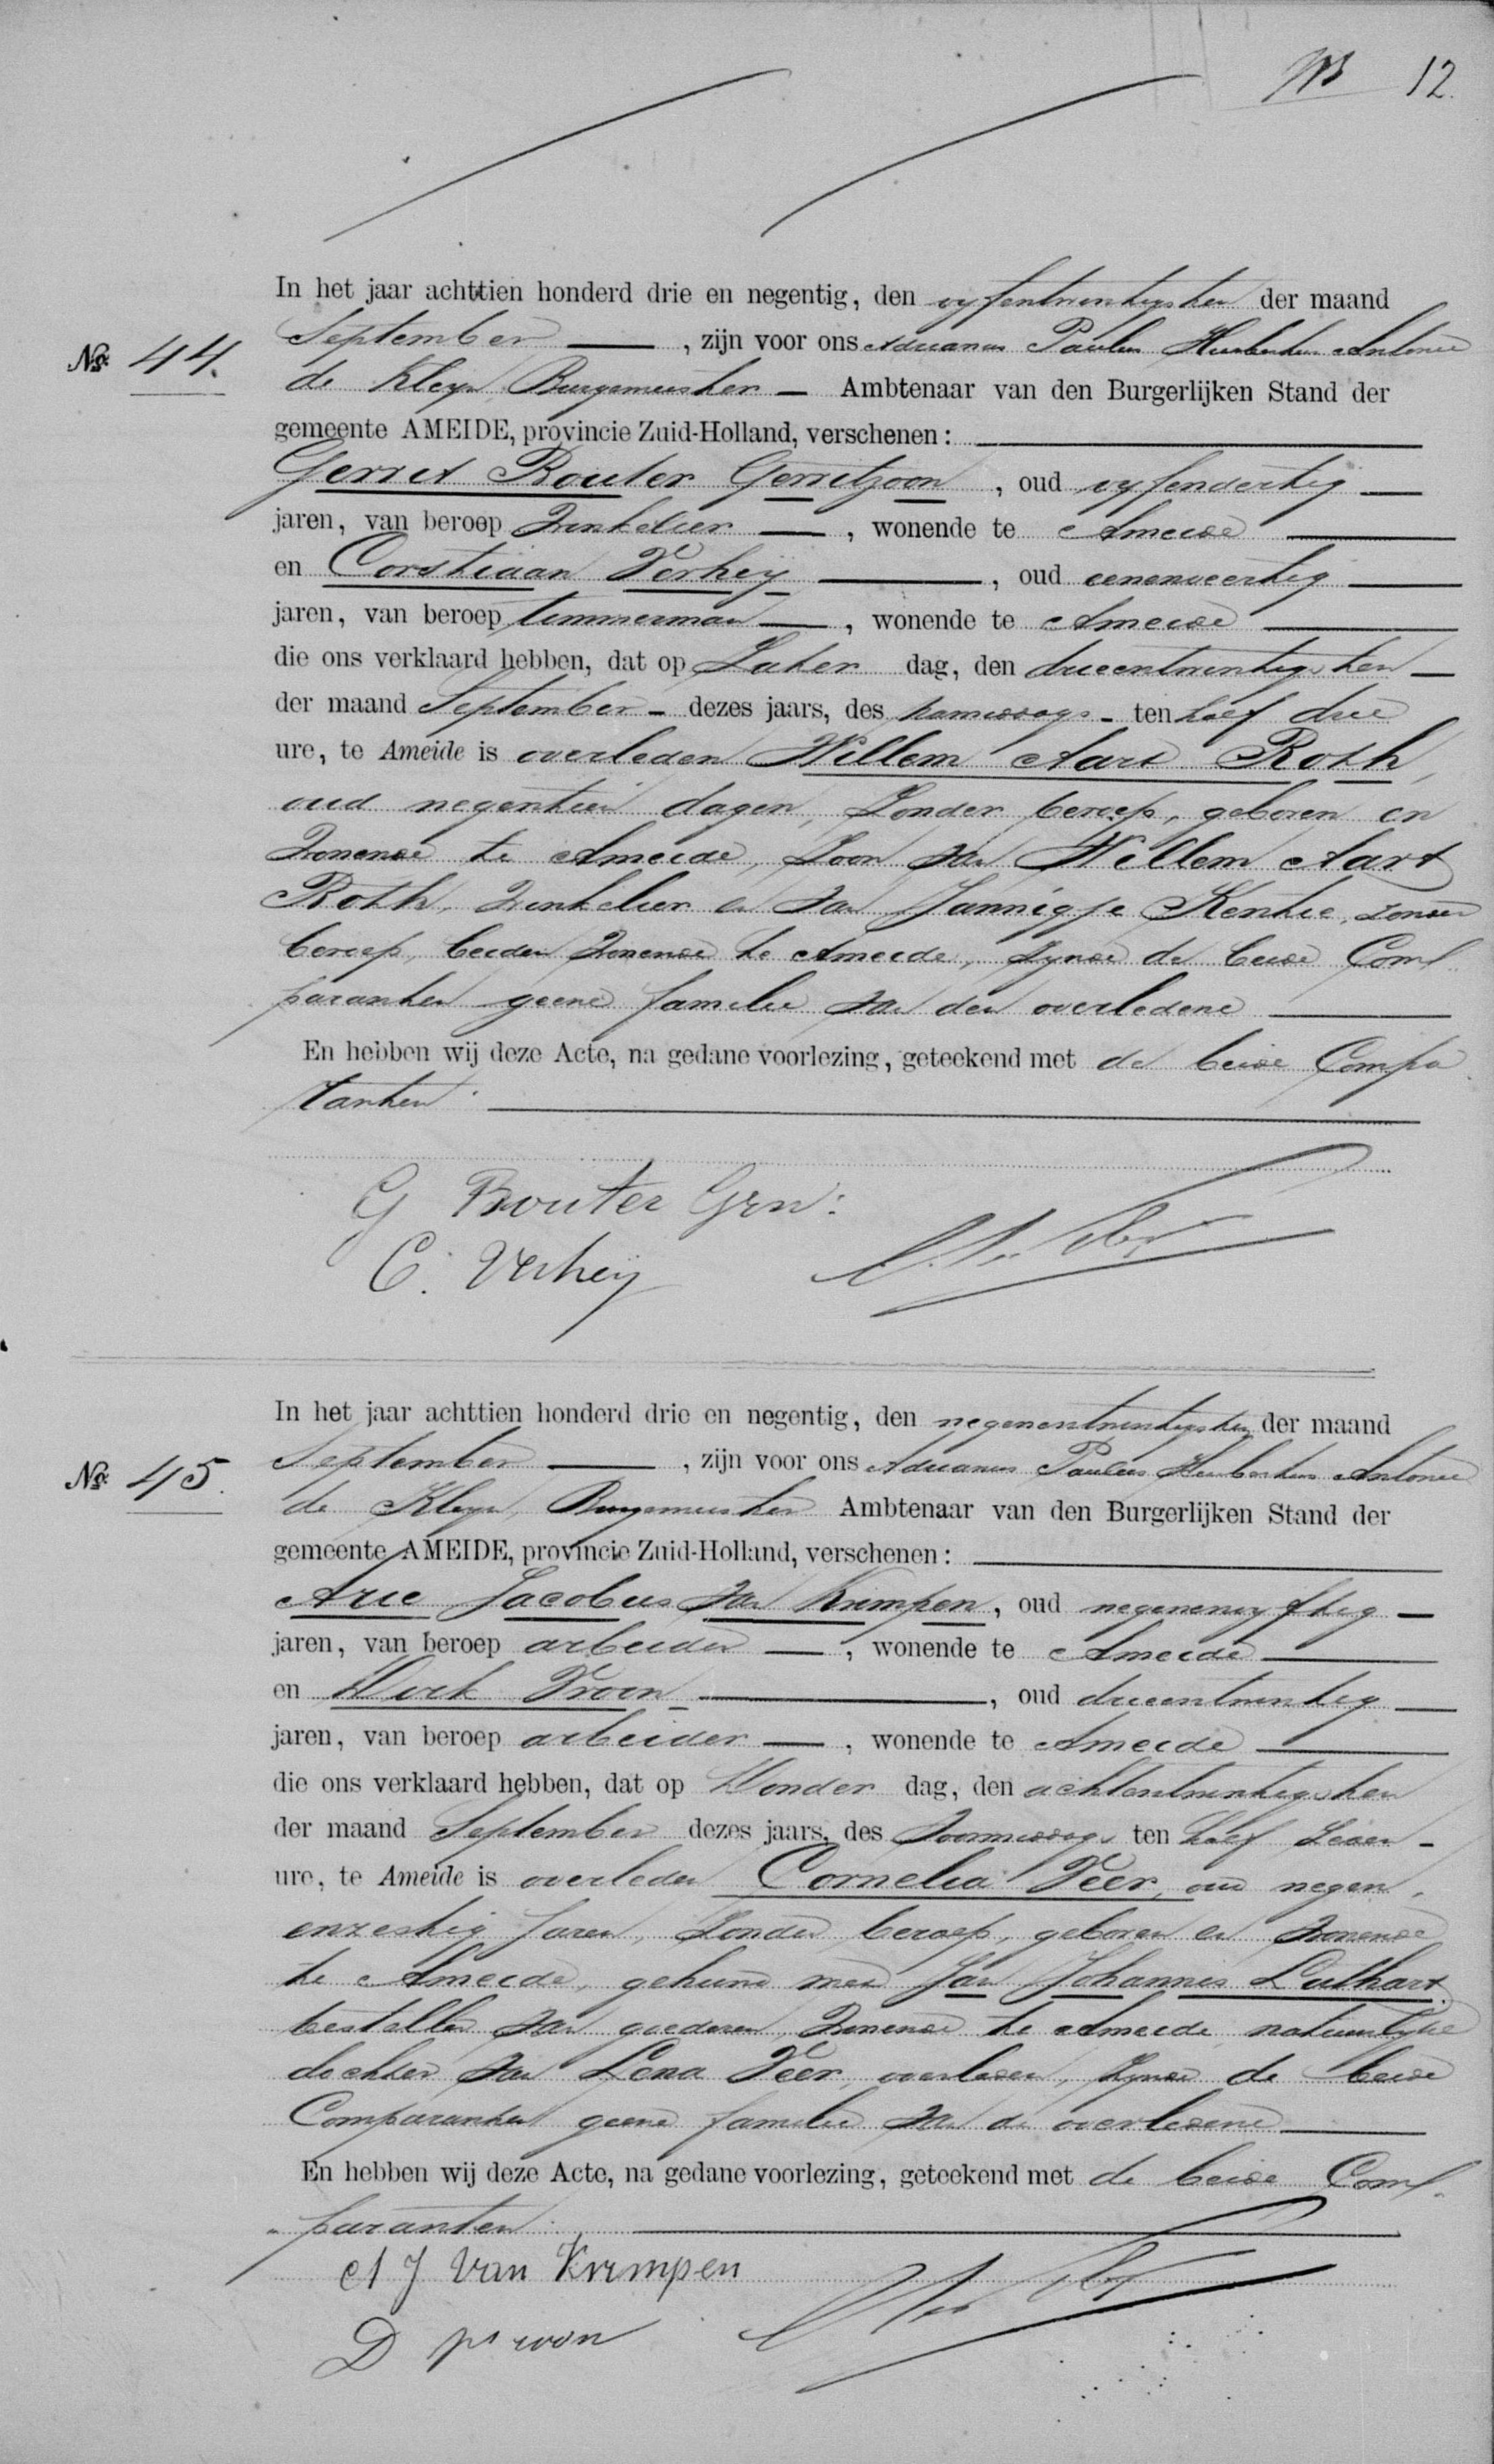 12.
In het jaar achttien honderd drie en negentig, den vyfentwintigsten der maand
No. 44.
September , zijn voor ons Adrianus Paulus Huibertus Antonie
de Kleyn, Burgemeester Ambtenaar van den Burgerlijken Stand der
gemeente AMEIDE, provincie Zuid-Holland, verschenen:
Gerrit Bouter Gerritzoon , oud vyfendertig
jaren, van beroep Winkelier , wonende te Ameide
en Corstiaan Verhey , oud eenenveertig
jaren, van beroep timmerman , wonende te Ameide
die ons verklaard hebben, dat op Zater dag, den drieentwintigsten
der maand September dezes jaars, des namiddags ten half drie
ure, te Ameide is overleden Willem Aart Roth,
oud negentien dagen, Zonder beroep, geboren en
Wonende te Ameide, Zoon van Willem Aart
Roth, Winkelier en van Jannigje Kentie, zonder
beroep, beiden Wonende te Ameide, Zynde de beide Com-
paranten geene familie van den overledene
En hebben wij deze Acte, na gedane voorlezing, geteekend met de beide Compa
ranten.
G Bouter Grzn:
C. Verheij
In het jaar achttien honderd drie en negentig, den negenentwintigsten der maand
No. 45.
September , zijn voor ons Adrianus Paulus Huibertus Antonie
de Kleyn, Burgemeester Ambtenaar van den Burgerlijken Stand der
gemeente AMEIDE, provincie Zuid-Holland, verschenen:
Arie Jacobus van Krimpen , oud negenenvyftig
jaren, van beroep arbeider , wonende te Ameide
en Dirk Vroon , oud drieentwintig
jaren, van beroep arbeider , wonende te Ameide
die ons verklaard hebben, dat op Donder dag, den achtentwintigsten
der maand September dezes jaars, des Voormiddags ten half Zeven
ure, te Ameide is overleden Cornelia Veer, oud negen
enzestig Jaren, Zonder beroep, geboren en Wonende
te Ameide, gehuwd met Jan Johannis Luthart,
besteller van goederen, Wonende te Ameide, natuurlyke
dochter van Lena Veer, overleden, Zynde de beide
Comparanten geene familie van de overledene
En hebben wij deze Acte, na gedane voorlezing, geteekend met de beide Com-
paranten.
A J van Krimpen
D